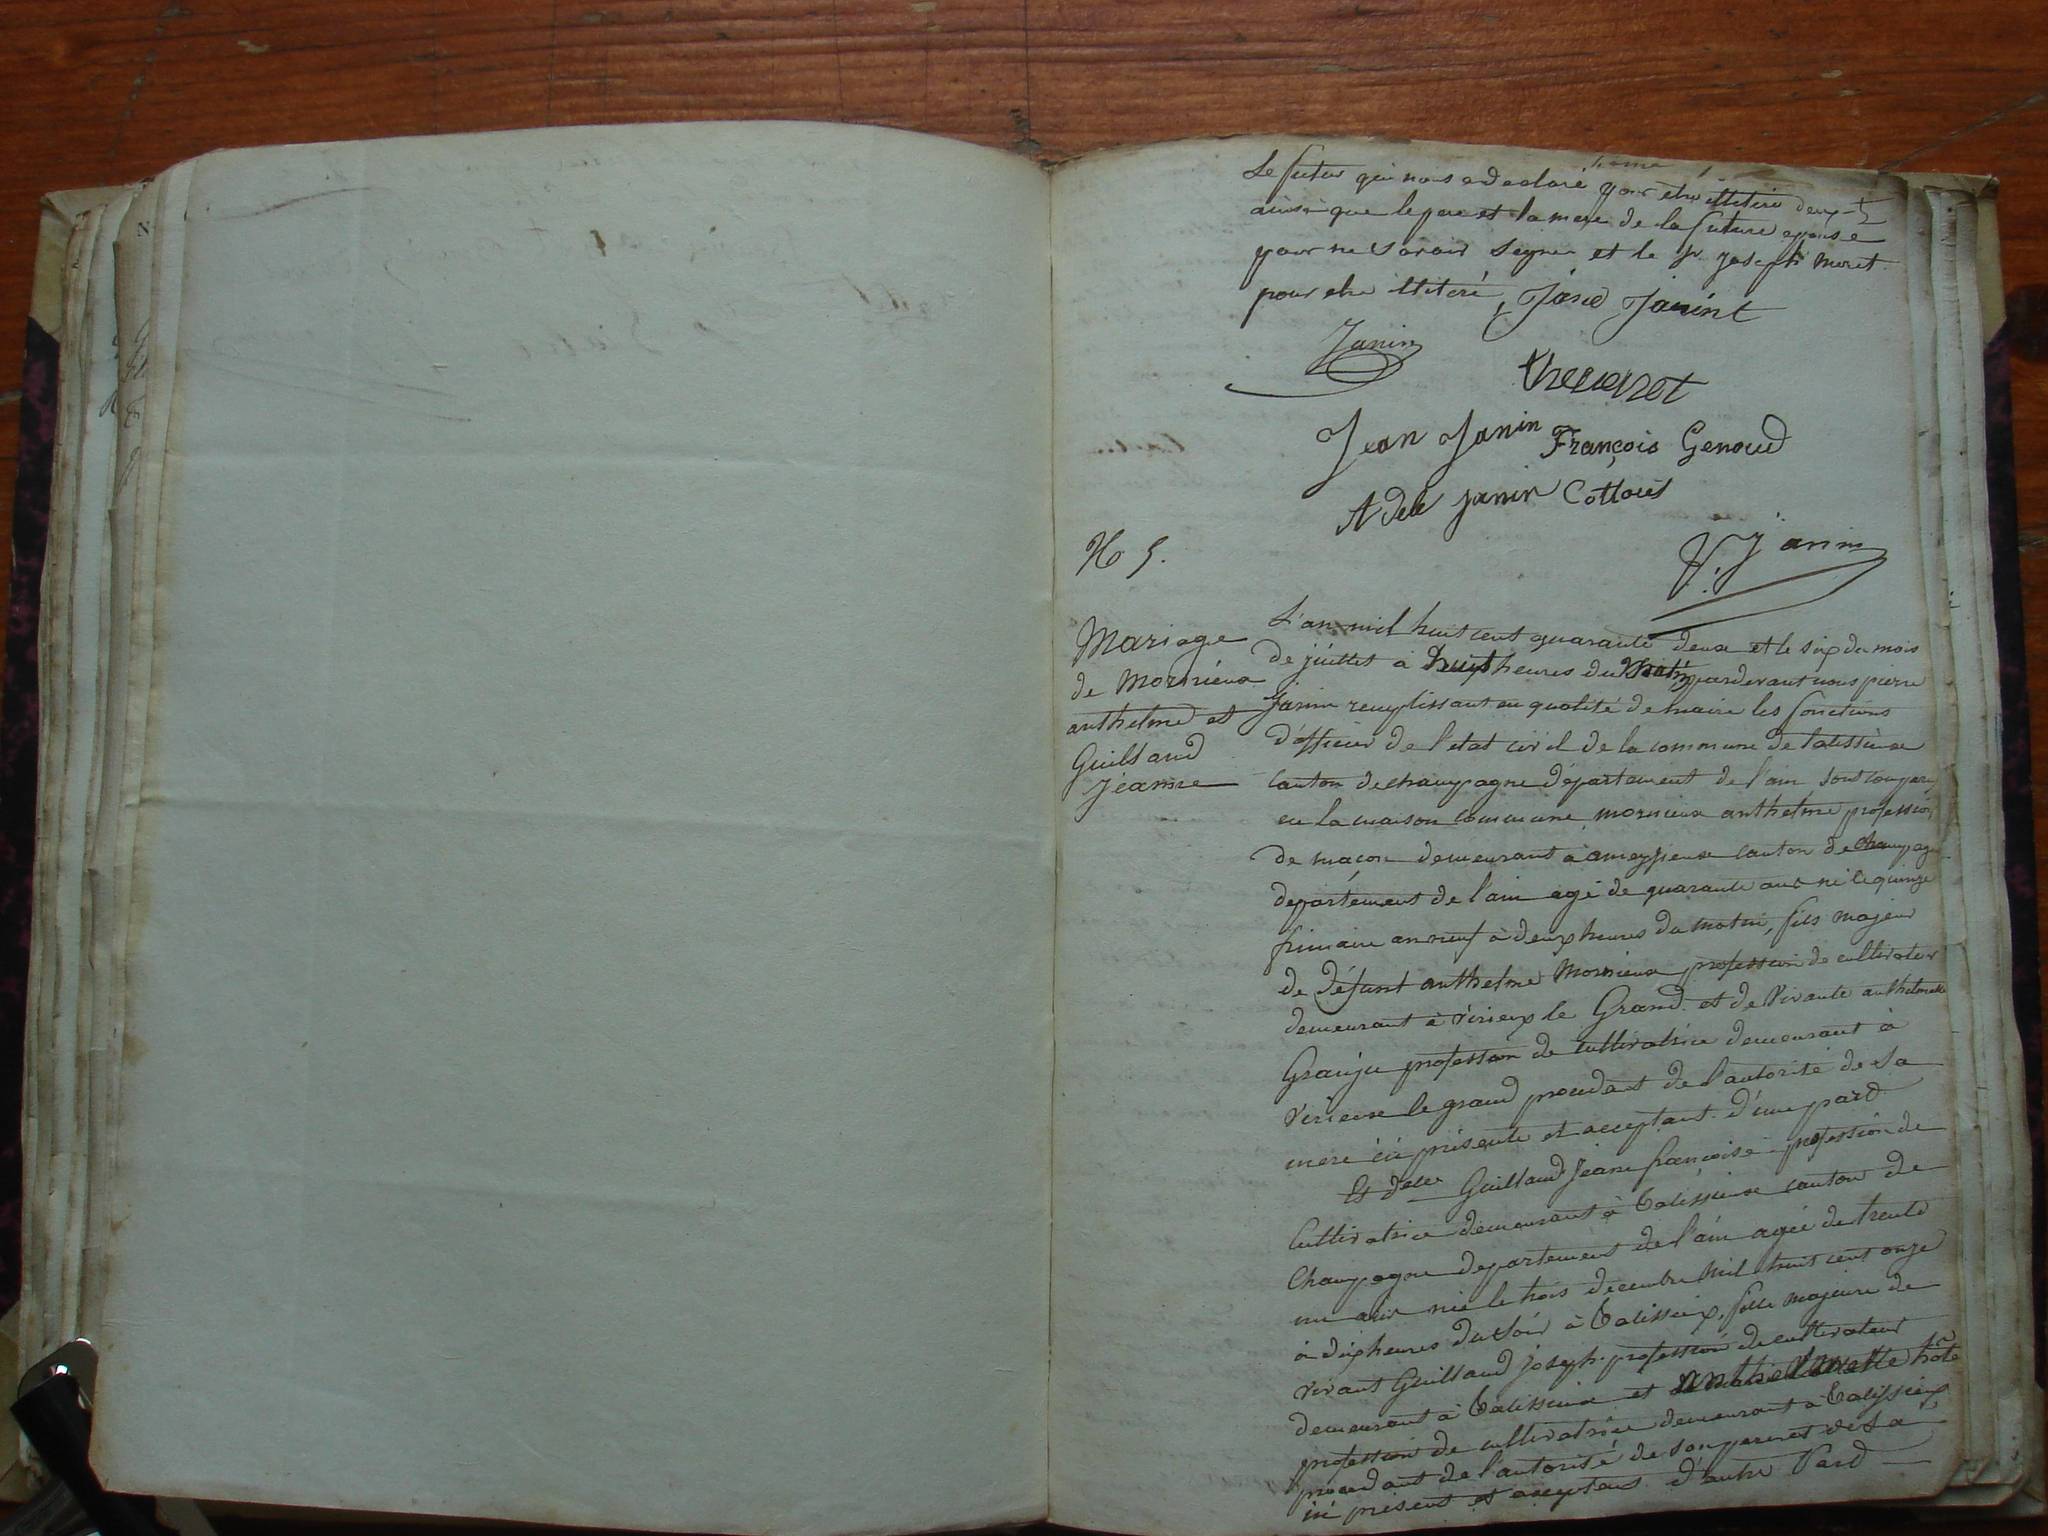 Le futur qui nous a declaré pour etre illitéré
ainsi que le pere et la mere de la future epouse
pour ne savoir signer et le sr joseph moret
pour etre illitéré, Janin
Janin
Jean Janin François Genoud
Adele janin Collovet
P. Janin
No 5.
Mariage
de Mornieux
anthelme et
Guilland
Jeanne
L'an mil huit cent quarante deux et le six du mois
de juillet à huit heures du matin pardevant nous pierre
Janin remplissant en qualité de maire les fonctions
d'officier de l'etat civil de la commune de talissieux
canton de champagne département de l'ain sont comparu
en la maison commune, mornieux anthelme profession
de maçon demeurant à ameyzieux canton de champagne
département de l'ain agé de quarante ans né le quinze
frimaire an neuf à deux heures du matin, fils majeur
de défunt anthelme Mornieux profession de cultivateur
demeurant à virieux le Grand et de vivante anthelmette
Granju profession de cultivatrice demeurant à
virieux le grand procedant de l'autorité de sa
mere ici présente et acceptant d'une pard
Et delle Guilland Jeane françoise profession de
Cultivatrice demeurant à talissieux canton de
Champagne departement de l'ain agée de trente
un ans née le trois decembre mil huit cent onze
à dix heures du soir à talissieux, fille majeure de
vivant Guilland joseph profession de cultivateur
demeurant à talissieux et hôte
profession de cultivatrice demeurant à talissieux
procedant de l'autorité de son pere et de sa
ici présents et acceptans d'autre Pard